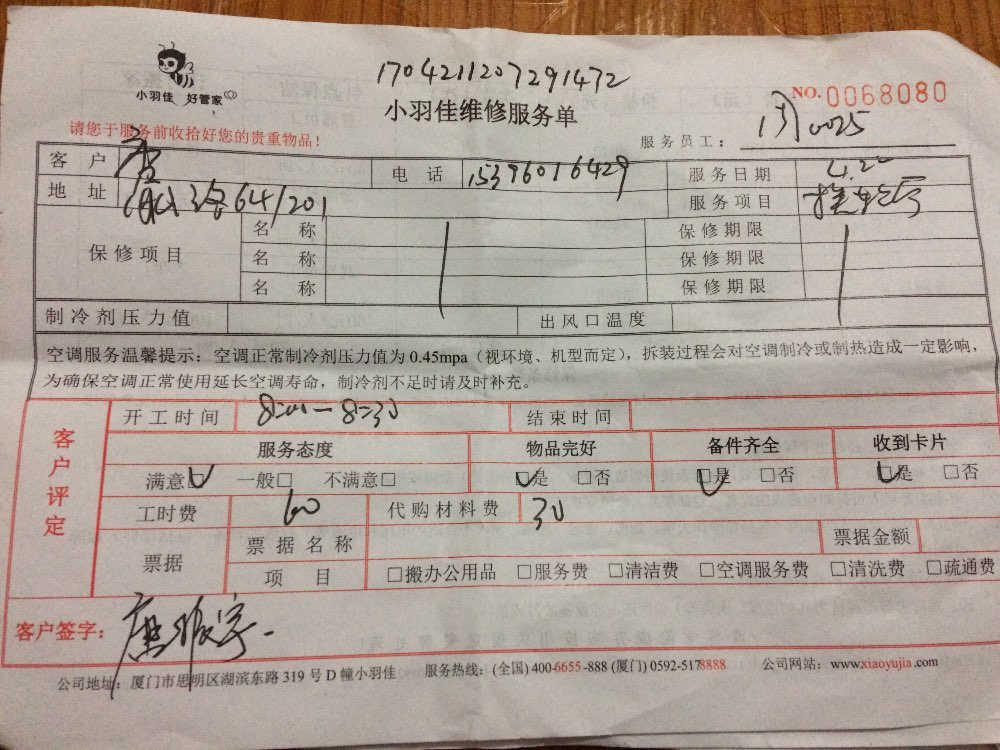 小羽佳 好管家
1704211207291472
小羽佳维修服务单
NO.0068080
请您于服务前收拾好您的贵重物品！
服务员工： 0025
客户 唐 电话 15396016429 服务日期 4.2
地址 路64/201 服务项目
保修项目 名称 保修期限
名称 保修期限
名称 保修期限
制冷剂压力值 出风口温度
空调服务温馨提示：空调正常制冷剂压力值为0.45mpa（视环境、机型而定），拆装过程会对空调制冷或制热造成一定影响，
为确保空调正常使用延长空调寿命，制冷剂不足时请及时补充。
客户评定
开工时间 8:00－8:30 结束时间
服务态度 物品完好 备件齐全 收到卡片
满意 一般□ 不满意□ □是 □否 □是 □否 □是 □否
工时费 60 代购材料费 30
票据 票据名称 票据金额
项目 □搬办公用品 □服务费 □清洁费 □空调服务费 □清洗费 □疏通费
客户签字：唐
公司地址：厦门市思明区湖滨东路319号D幢小羽佳 服务热线：(全国) 400-6655-888 (厦门) 0592-5178888 公司网站：www.xiaoyujia.com